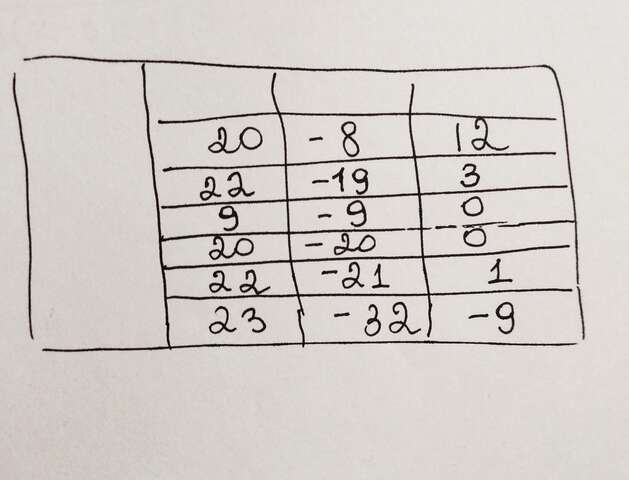 20 -8 12
22 -19 3
9 -9 0
20 -20 0
22 -21 1
23 -32 -9